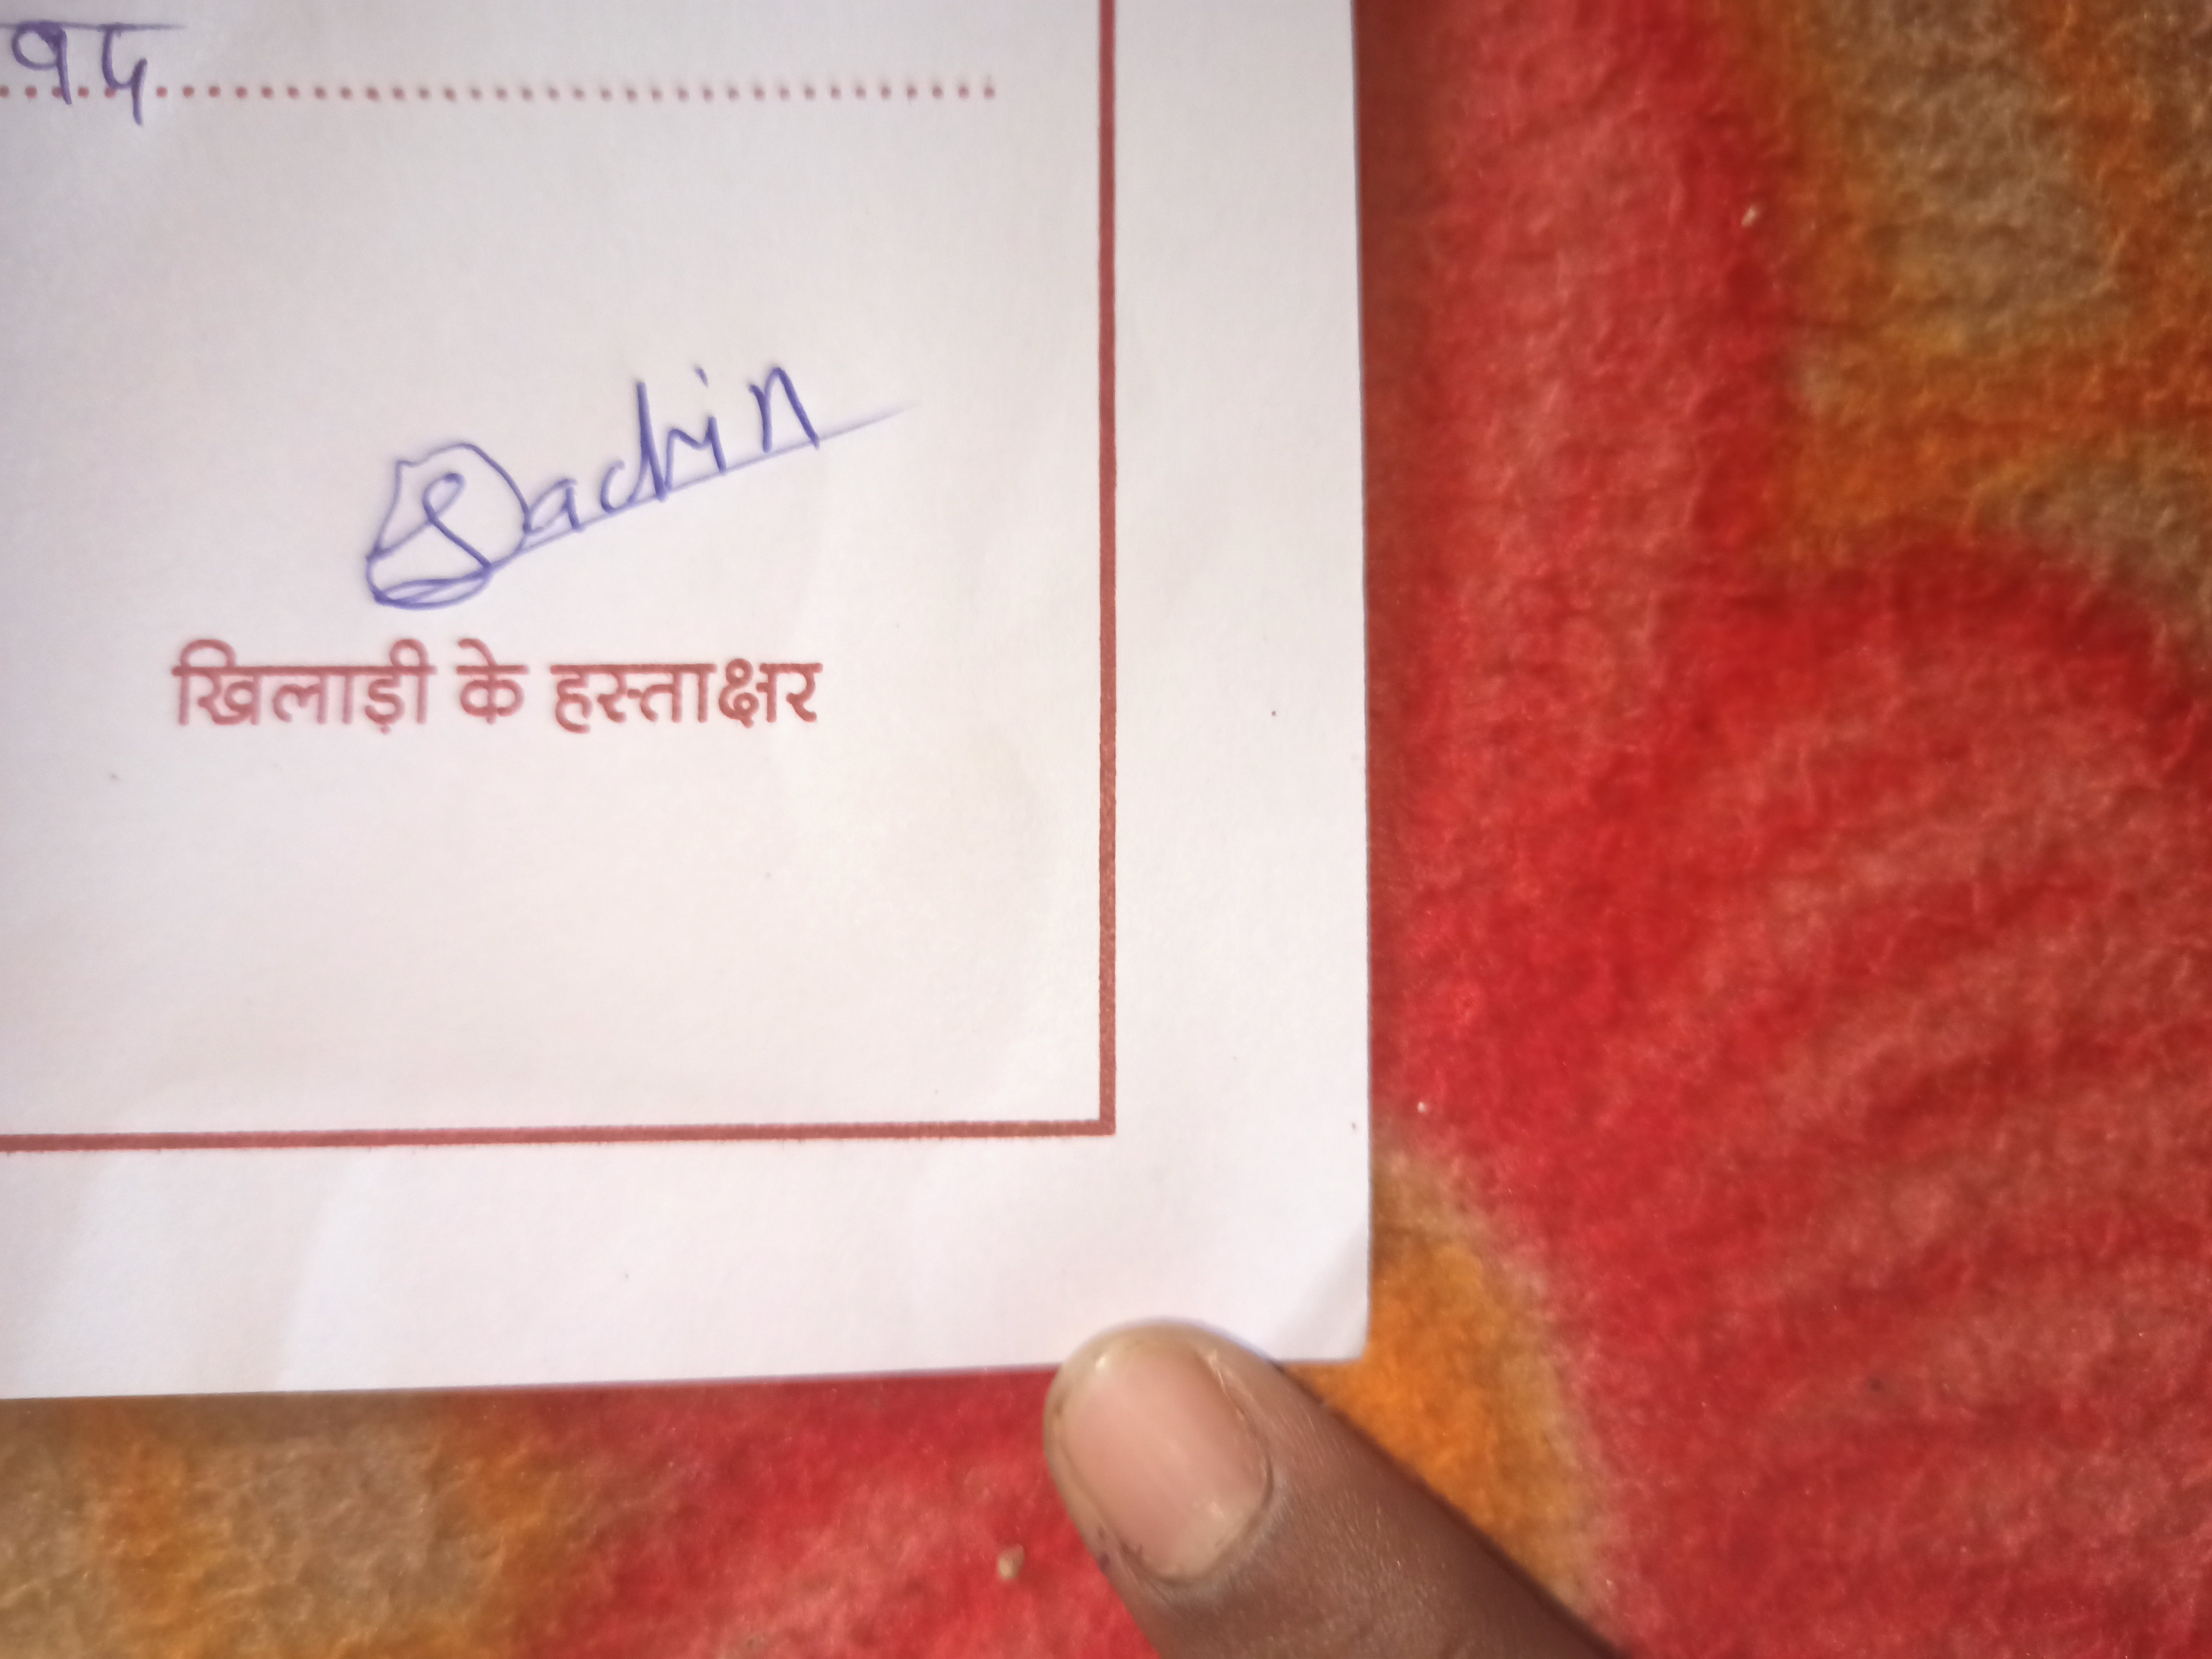 Sachin
खिलाड़ी के हस्ताक्षर